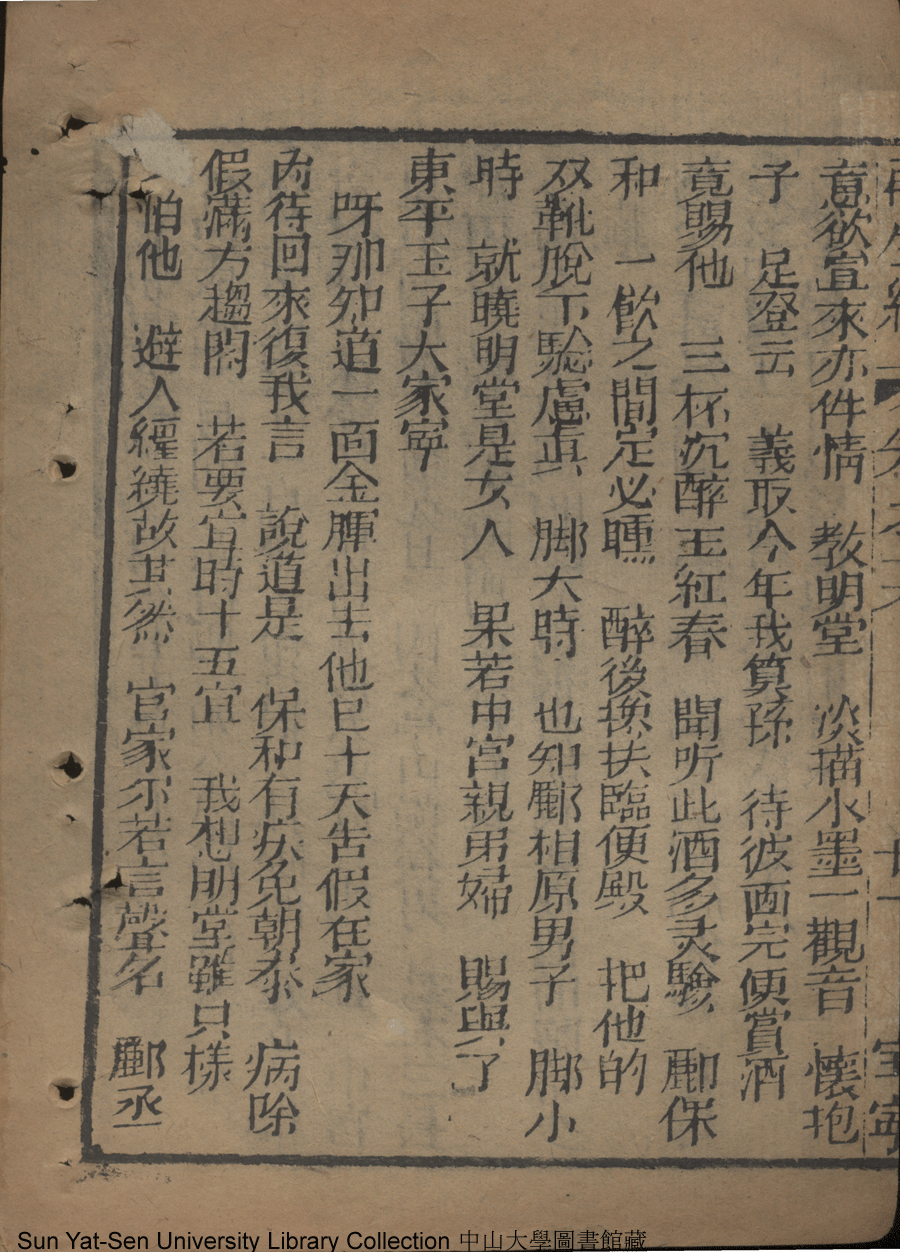 意欲宣來亦件情　教明堂　淡描水墨一觀音　懷抱
子　足登云　義取今年我算孫　待彼画完便賞酒
竟賜他　三杯沉醉玉紅春　聞听此酒多灵驗　郦保
和　一飲之間定必醺　醉後挨扶臨便殿　把他的
双靴脫下驗慮真　脚大時　也知酈相原男子　脚小
時　就曉明堂是女人　果若中宮親弟婦　賜與了
東平王子大家寧
呀那知道一面金牌出去他已十天告假在家
內待回來復我言　說道是　保和有疾免朝叅　病除
假滿方趨閣　若要宣時十五宣　我想明堂雖只樣
怕他　避人纒繞故其然　官家尔若言聲名　酈丞
Sun Yat-Sen University Library Collection 中山大學圖書館藏